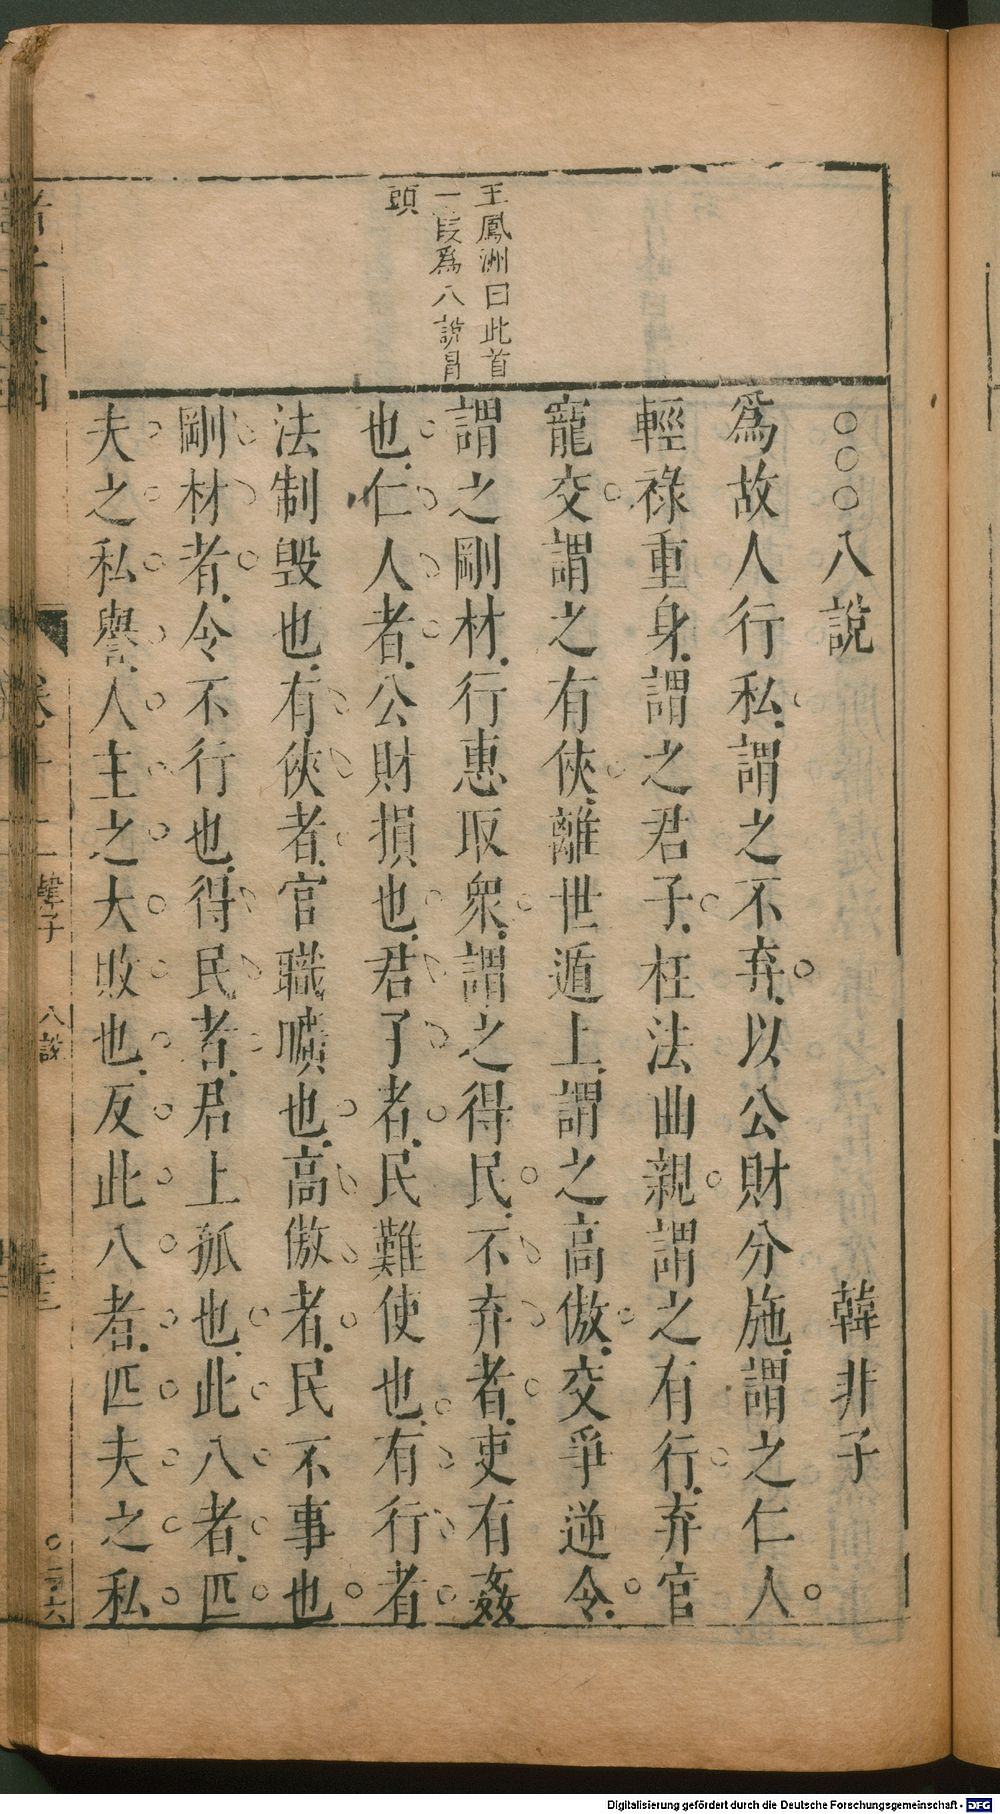 王鳳洲曰此首
一段為八說冒
頭
○○○八說 韓非子
爲故人行私謂之不弃以公財分施謂之仁人
輕祿重身謂之君子枉法曲親謂之有行弃官
寵交謂之有俠離世遁上謂之高傲交爭逆令
謂之剛材行惠取衆謂之得民不弃者吏有姦
也仁人者公財損也君子者民難使也有行者
法制毁也有俠者官職曠也高傲者民不事也
剛材者令不行也得民者君上孤也此八者匹
夫之私譽人主之大敗也反此八者匹夫之私
韓子 八說
Digitalisierung gefördert durch die Deutsche Forschungsgemeinschaft - DFG